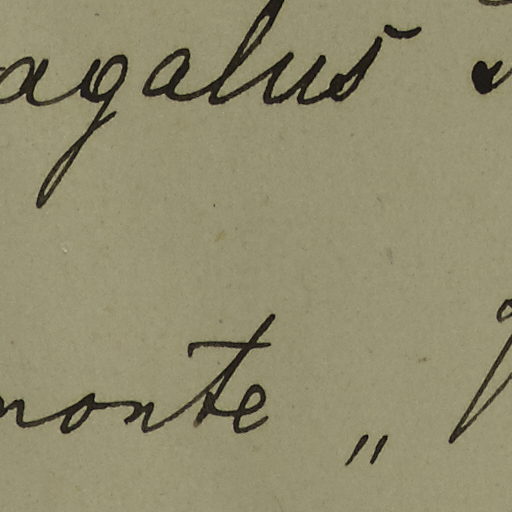 agalus
monte „